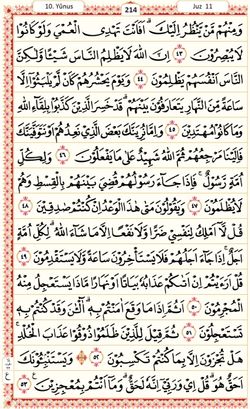 10. Yûnus
214
Juz 11
وَمِنْهُمْ مَّنْ يَّنْظُرُ اِلَيْكَ ۗ اَفَاَنْتَ تَهْدِى الْعُمْيَ وَلَوْ كَانُوْا
لَا يُبْصِرُوْنَ ٤٣ اِنَّ اللّٰهَ لَا يَظْلِمُ النَّاسَ شَيْـًٔا وَّلٰكِنَّ
النَّاسَ اَنْفُسَهُمْ يَظْلِمُوْنَ ٤٤ وَيَوْمَ يَحْشُرُهُمْ كَاَنْ لَّمْ يَلْبَثُوْٓا اِلَّا
سَاعَةً مِّنَ النَّهَارِ يَتَعَارَفُوْنَ بَيْنَهُمْ ۗ قَدْ خَسِرَ الَّذِيْنَ كَذَّبُوْا بِلِقَآءِ اللّٰهِ
وَمَا كَانُوْا مُهْتَدِيْنَ ٤٥ وَاِمَّا نُرِيَنَّكَ بَعْضَ الَّذِيْ نَعِدُهُمْ اَوْ نَتَوَفَّيَنَّكَ
فَاِلَيْنَا مَرْجِعُهُمْ ثُمَّ اللّٰهُ شَهِيْدٌ عَلٰى مَا يَفْعَلُوْنَ ٤٦ وَلِكُلِّ
اُمَّةٍ رَّسُوْلٌ ۚ فَاِذَا جَآءَ رَسُوْلُهُمْ قُضِيَ بَيْنَهُمْ بِالْقِسْطِ وَهُمْ
لَا يُظْلَمُوْنَ ٤٧ وَيَقُوْلُوْنَ مَتٰى هٰذَا الْوَعْدُ اِنْ كُنْتُمْ صٰدِقِيْنَ ٤٨
قُلْ لَّآ اَمْلِكُ لِنَفْسِيْ ضَرًّا وَّلَا نَفْعًا اِلَّا مَا شَآءَ اللّٰهُ ۗ لِكُلِّ اُمَّةٍ
اَجَلٌ ۚ اِذَا جَآءَ اَجَلُهُمْ فَلَا يَسْتَأْخِرُوْنَ سَاعَةً وَّلَا يَسْتَقْدِمُوْنَ ٤٩
قُلْ اَرَءَيْتُمْ اِنْ اَتٰىكُمْ عَذَابُهٗ بَيَاتًا اَوْ نَهَارًا مَّاذَا يَسْتَعْجِلُ مِنْهُ
الْمُجْرِمُوْنَ ٥٠ اَثُمَّ اِذَا مَا وَقَعَ اٰمَنْتُمْ بِهٖ ۗ اٰۤلْـٰٔنَ وَقَدْ كُنْتُمْ بِهٖ
تَسْتَعْجِلُوْنَ ٥١ ثُمَّ قِيْلَ لِلَّذِيْنَ ظَلَمُوْا ذُوْقُوْا عَذَابَ الْخُلْدِ ۚ
هَلْ تُجْزَوْنَ اِلَّا بِمَا كُنْتُمْ تَكْسِبُوْنَ ٥٢ وَيَسْتَنْۢبِـُٔوْنَكَ
اَحَقٌّ هُوَ ۗ قُلْ اِيْ وَرَبِّيْٓ اِنَّهٗ لَحَقٌّ ۗ وَمَآ اَنْتُمْ بِمُعْجِزِيْنَ ٥٣